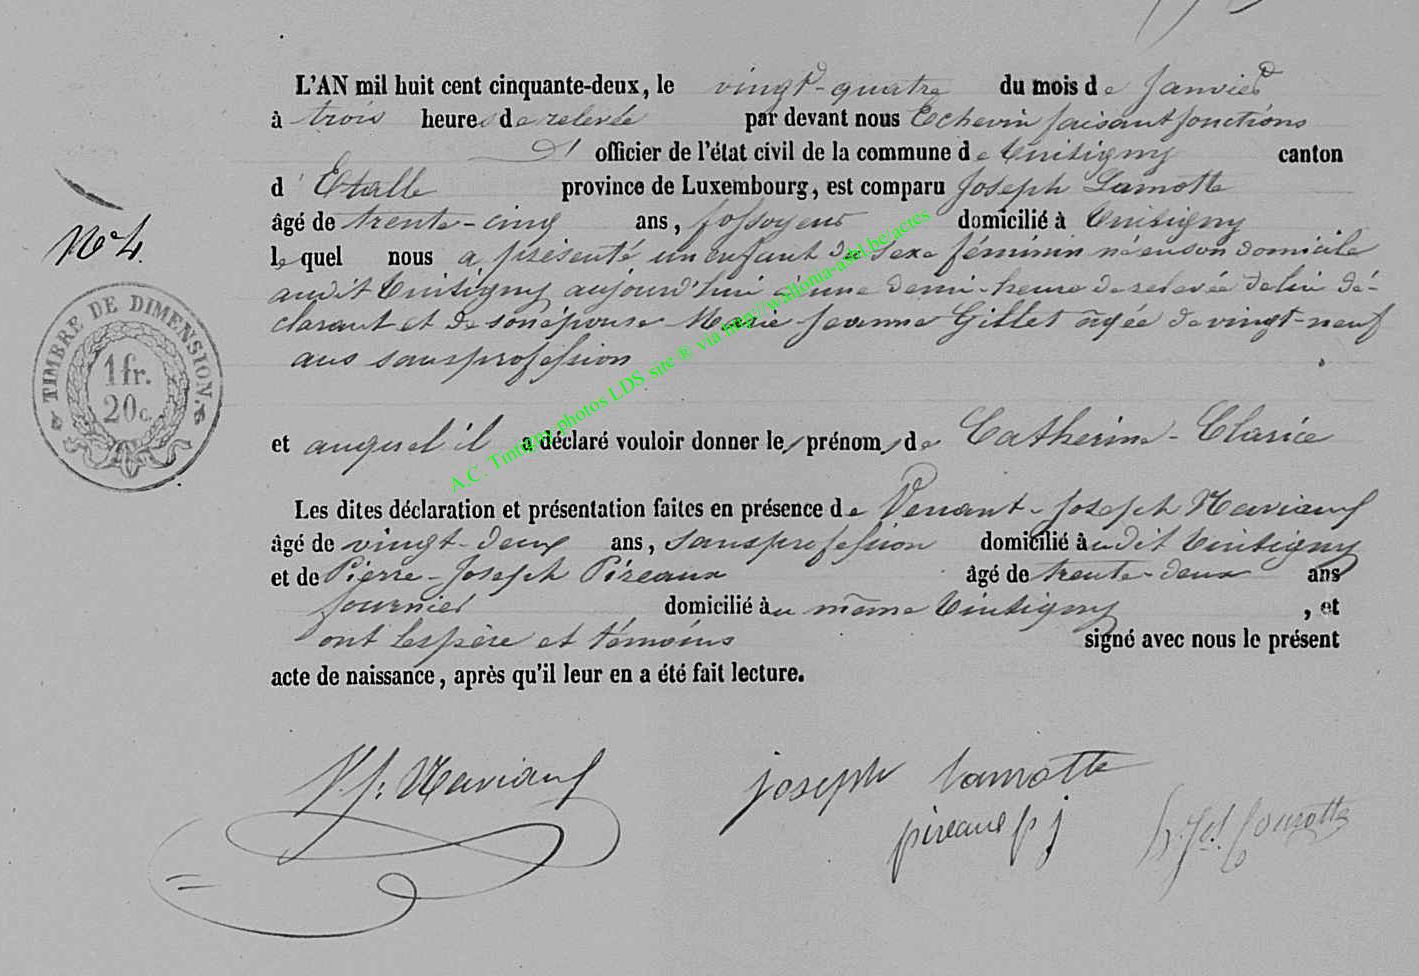 L'AN mil huit cent cinquante-deux, le vingt-quatre du mois de Janvier
à trois heures de relevée par devant nous Echevin faisant fonctions
d' officier de l'état civil de la commune de Tintigny canton
d'Etalle province de Luxembourg, est comparu Joseph Lamotte
âgé de trente-cinq ans, fossoyeur domicilié à Tintigny
N° 4.
le quel nous a présenté un enfant de sexe féminin né en son domicile
audit Tintigny aujourd'hui à une demi-heure de relevée de lui dé-
clarant et de son épouse Marie-Jeanne Gillet agée de vingt-neuf
ans sans profession
TIMBRE DE DIMENSION.
1 fr.
20 c.
et auquel il a déclaré vouloir donner les prénoms de Catherine-Clarice
Les dites déclaration et présentation faites en présence de Venant-Joseph
âgé de vingt-deux ans, sans profession domicilié audit Tintigny
et de Pierre-Joseph Pireaux âgé de trente-deux ans
journier domicilié au même Tintigny, et
ont les père et témoins signé avec nous le présent
acte de naissance, après qu'il leur en a été fait lecture.
joseph lamotte
pireaux p j
A.C. Tintigny photos LDS site ® via http://wallonia-asbl.be/actes